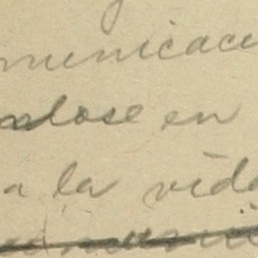 municaci
dose en
a la vida